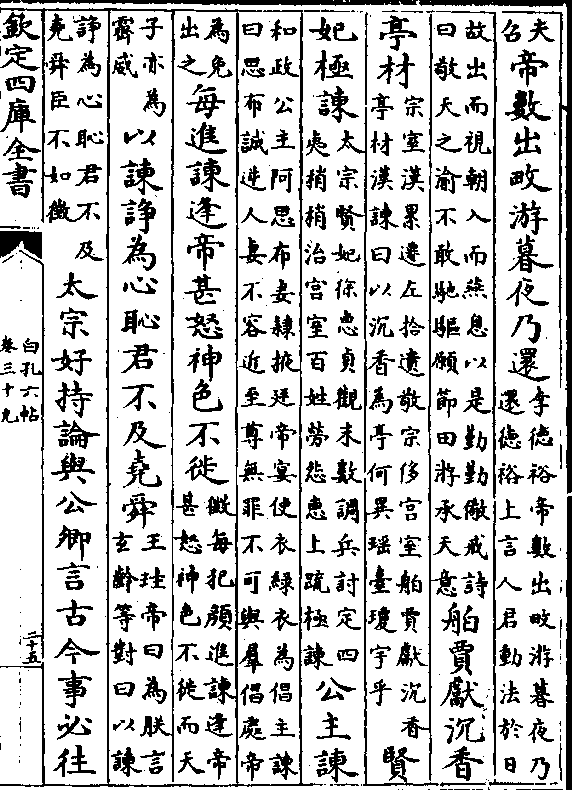 夫召帝數出畋游暮夜乃還李德裕帝數出畋游暮夜乃還德裕上言人君動法於日
故出而視朝入而燕息以是勤勤儆戒詩曰敬天之渝不敢馳驅願節田游承天意舶賈獻沉香
亭材宗室漢累遷左拾遺敬宗侈宫室舶賈獻沉香亭材漢諫曰以沉香為亭何異瑶臺瓊宇乎賢
妃極諫太宗賢妃徐惠貞觀末數調兵討定四夷稍稍治宫室百姓勞怨惠上疏極諫公主諫
和政公主阿思布妻隸掖廷帝宴使衣綠衣為倡主諫曰思布誠逆人妻不容近至尊無罪不可與羣倡處帝
為免出之每進諫逢帝甚怒神色不徙徵每犯顔進諫逢帝甚怒神色不徙而天
子亦為霽威以諫諍為心恥君不及堯舜王珪帝曰為朕言玄齡等對曰以諫
諍為心恥君不及堯舜臣不如徵太宗好持論與公卿言古今事必往
欽定四庫全書
白孔六帖
卷三十九
二十五